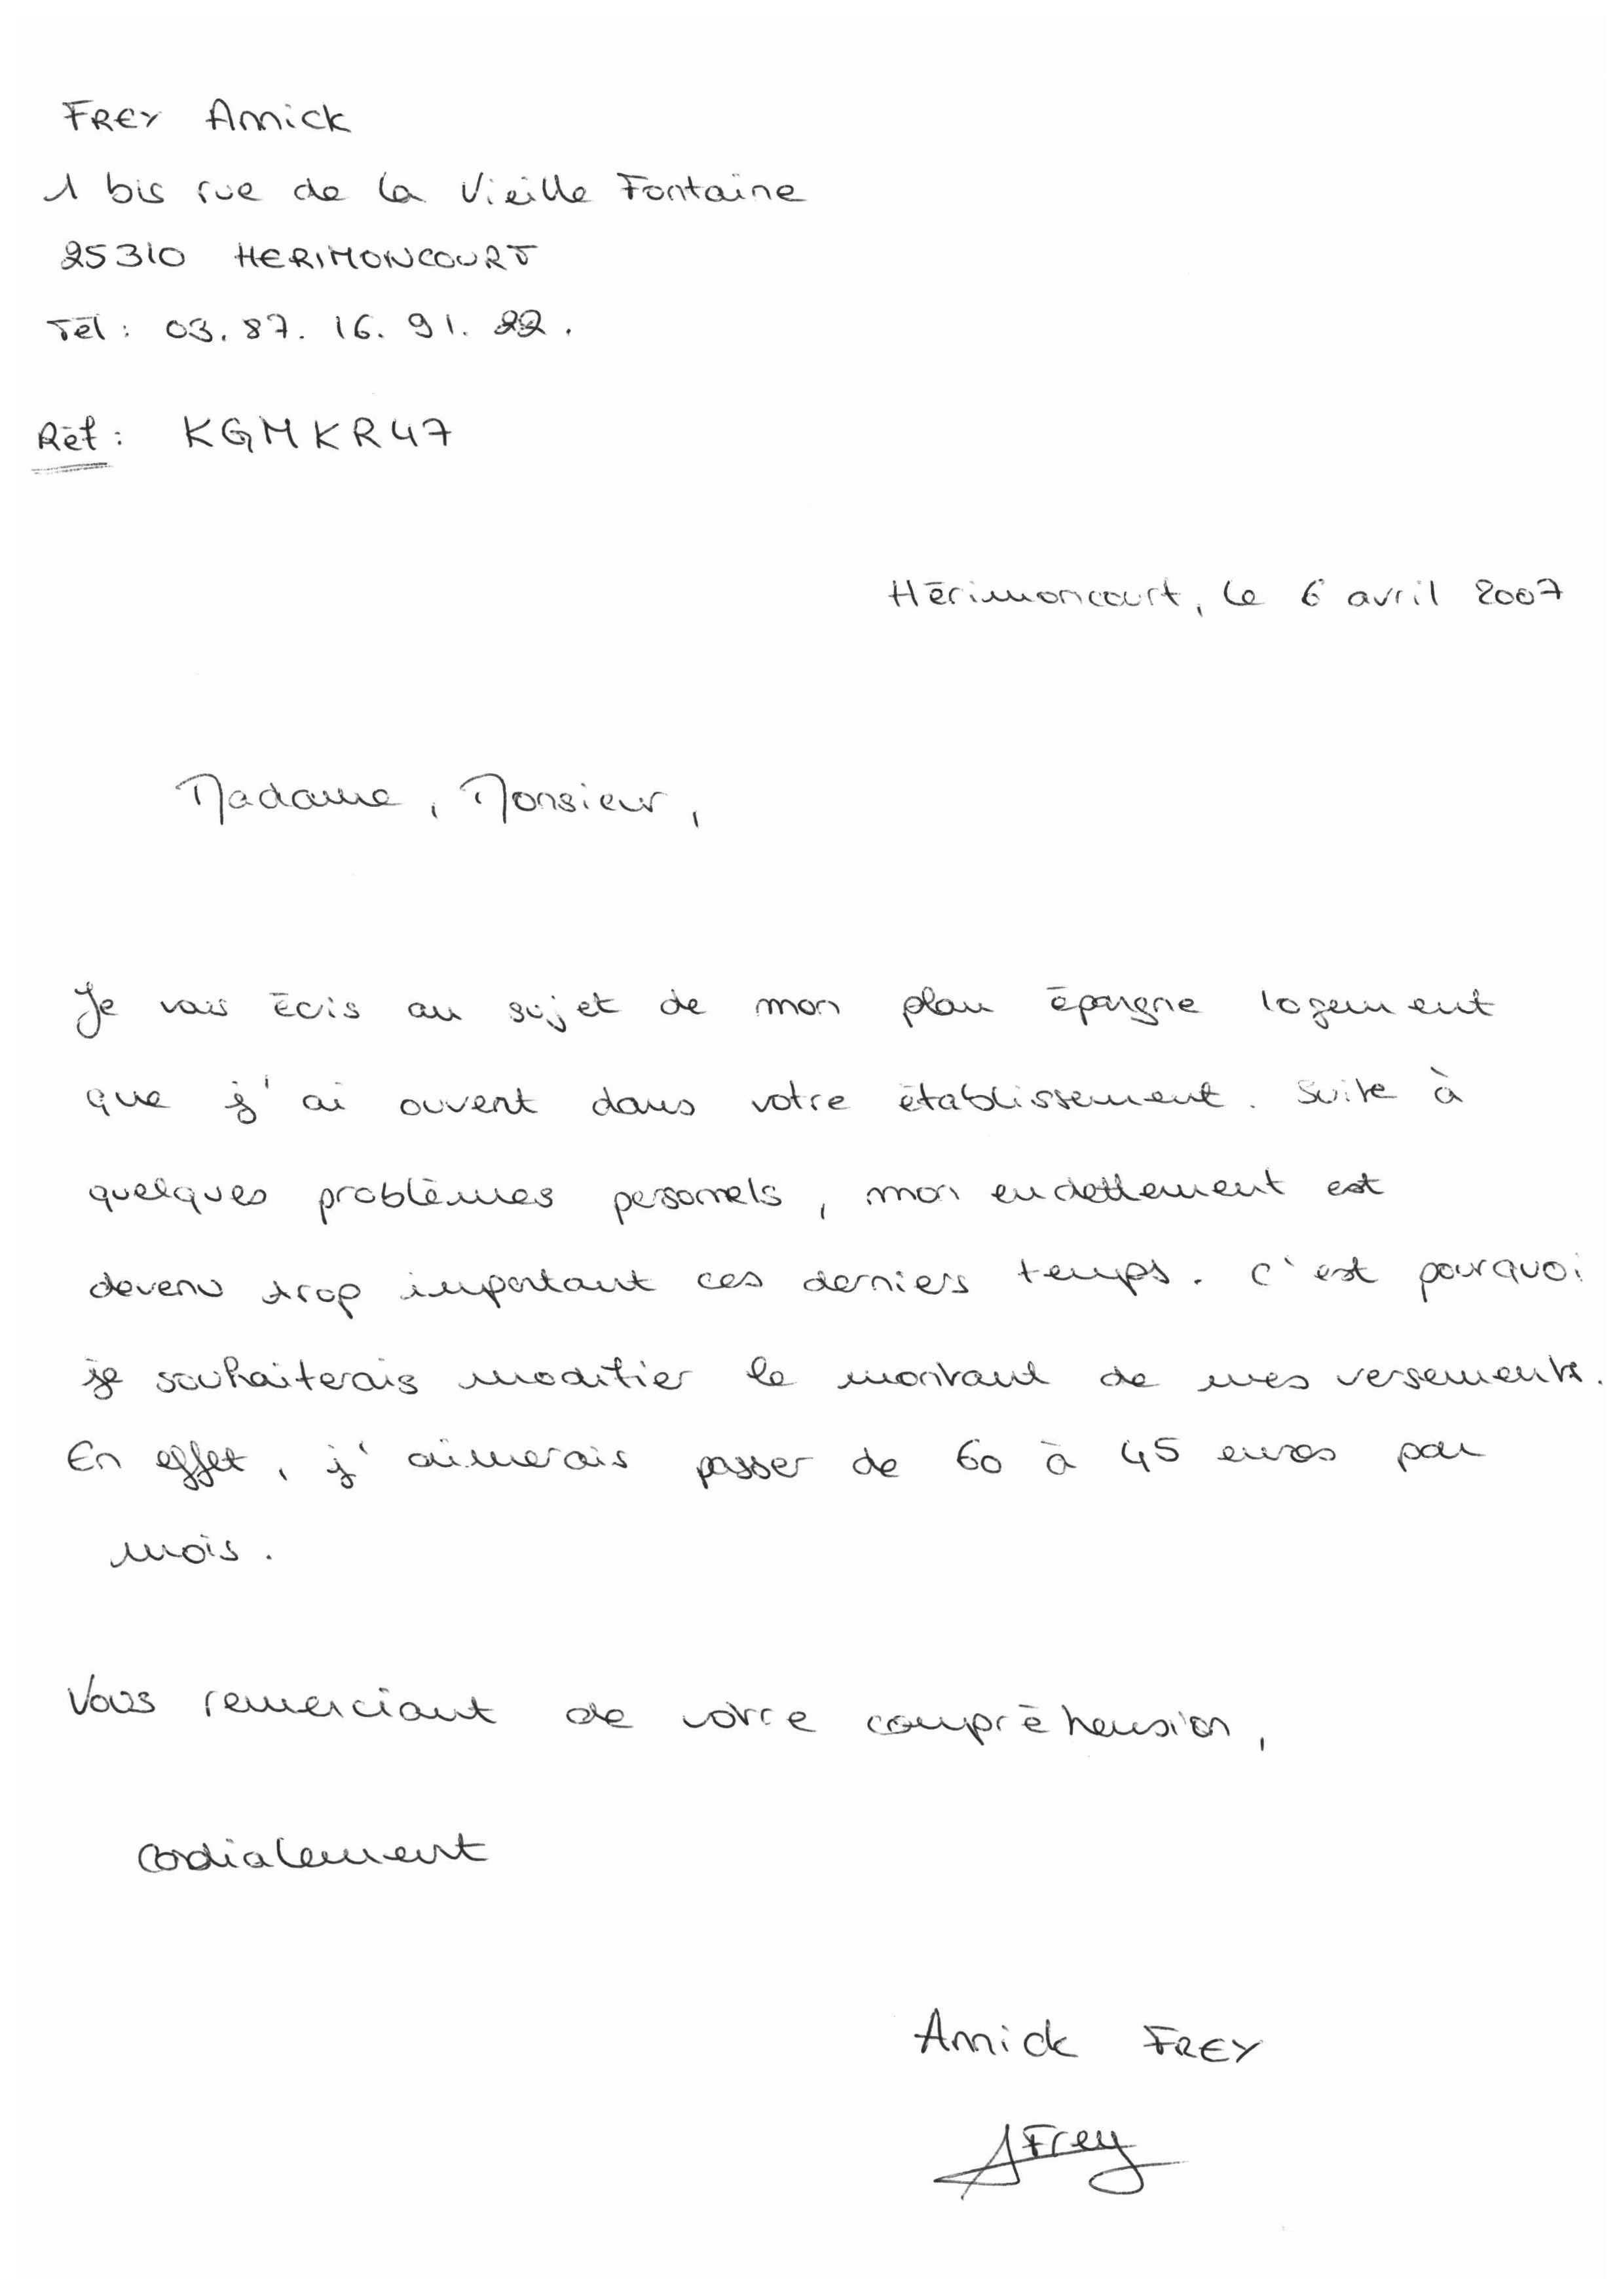 FREY Annick
1 bis rue de la Vieille Fontaine
25310 HERIMONCOURT
Tél : 03.87.16.91.22.
Réf : KGMKR47
Hérimoncourt, le 6 avril 2007
Madame, Monsieur,
Je vous écris au sujet de mon plan épargne logement
que j'ai ouvert dans votre établissement. Suite à
quelques problèmes personnels, mon endettement est
devenu trop important ces derniers temps. C'est pourquoi
je souhaiterais modifier le montant de mes versements.
En effet, j'aimerais passer de 60 à 45 euros par
mois.
Vous remerciant de votre compréhension,
Cordialement
Annick FREY
AFrey